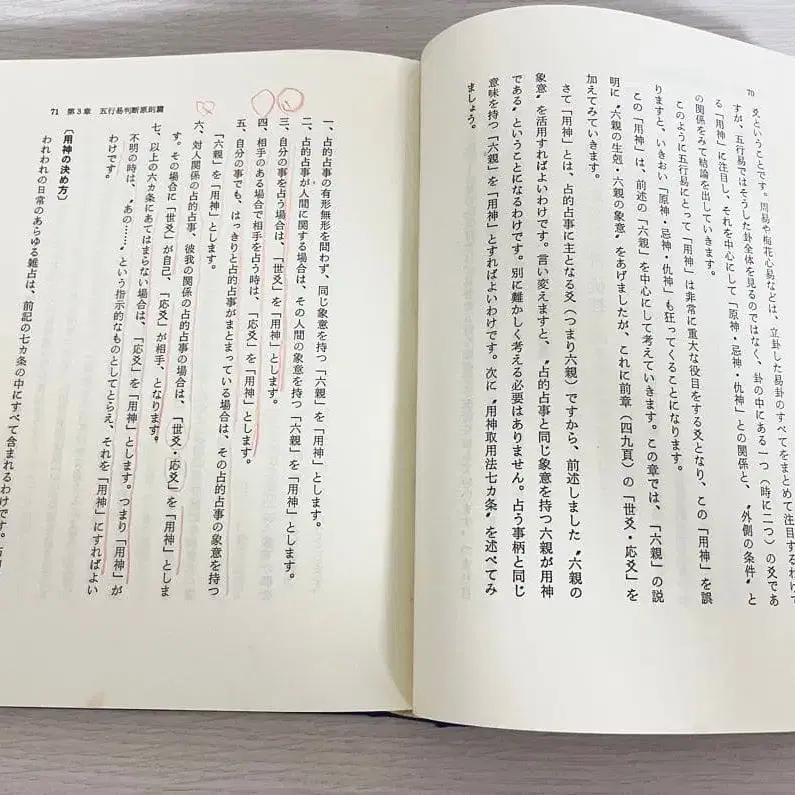 70
爻ということです。周易や梅花心易などは、立卦した易卦のすべてをまとめて注目するわけで
すが、五行易ではそうした卦全体を見るのではなく、卦の中にある一つ（時に二つ）の爻であ
る「用神」に注目し、それを中心にして「原神・忌神・仇神」との関係と、〝外側の条件〟と
の関係をみて結論を出していきます。
このように五行易にとって「用神」は非常に重大な役目をする爻となり、この「用神」を誤
りますと、いきおい「原神・忌神・仇神」も狂ってくることになります。
この「用神」は、前述の「六親」を中心にして考えていきます。この章では、「六親」の説
明に〝六親の生剋・六親の象意〟をあげましたが、これに前章（四九頁）の「世爻・応爻」を
加えてみていきます。
さて「用神」とは、占的占事に主となる爻（つまり六親）ですから、前述しました〝六親の
象意〟を活用すればよいわけです。言い変えますと、〝占的占事と同じ象意を持つ六親が用神
である〟ということになるわけです。別に難かしく考える必要はありません。占う事柄と同じ
意味を持つ「六親」を「用神」とすればよいわけです。次に〝用神取用法七カ条〟を述べてみ
ましょう。
71 第3章 五行易判断原則篇
一、占的占事の有形無形を問わず、同じ象意を持つ「六親」を「用神」とします。
二、占的占事が人間に関する場合は、その人間の象意を持つ「六親」を「用神」とします。
三、自分の事を占う場合は、「世爻」を「用神」とします。
四、相手のある場合で相手を占う時は、「応爻」を「用神」とします。
五、自分の事でも、はっきりと占的占事がまとまっている場合は、その占的占事の象意を持つ
「六親」を「用神」とします。
六、対人関係の占的占事、彼我の関係の占的占事の場合は、「世爻・応爻」を「用神」としま
す。その場合に「世爻」が自己、「応爻」が相手、となります。
七、以上の六カ条にあてはまらない場合は、「応爻」を「用神」とします。つまり「用神」が
不明の時は、〝あの……〟という指示的なものとしてとらえ、それを「用神」にすればよい
わけです。
〔用神の決め方〕
われわれの日常のあらゆる雑占は、前記の七カ条の中にすべて含まれるわけです。